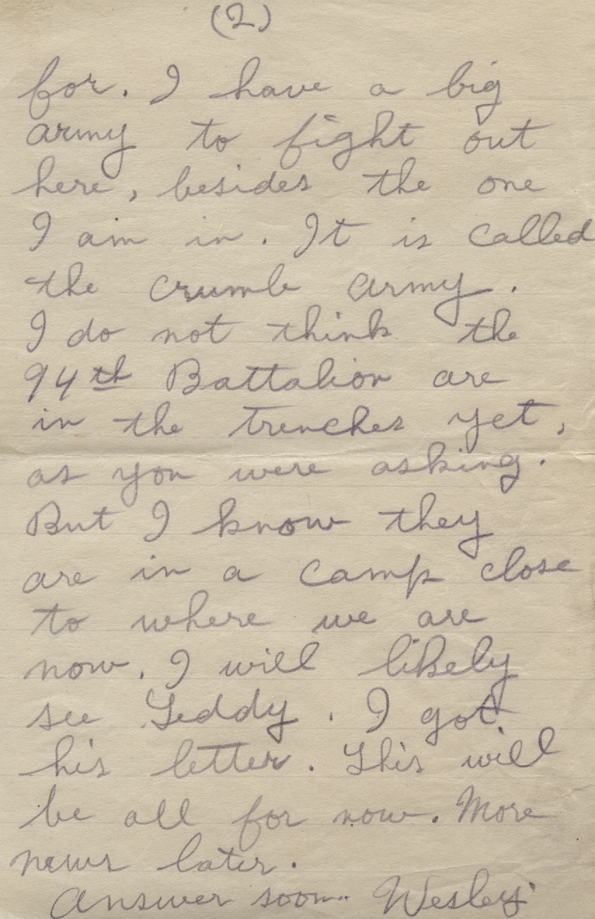 (2)
for. I have a big
army to fight out
here, besides the one
I am in. It is called
the crumb army.
I do not think the
94th Battalion are
in the trenches yet,
as you were asking.
But I know they
are in a camp close
to where we are
now. I will likely
see Teddy. I got
his letter. This will
be all for now. More
news later.
Answer soon. Wesley.